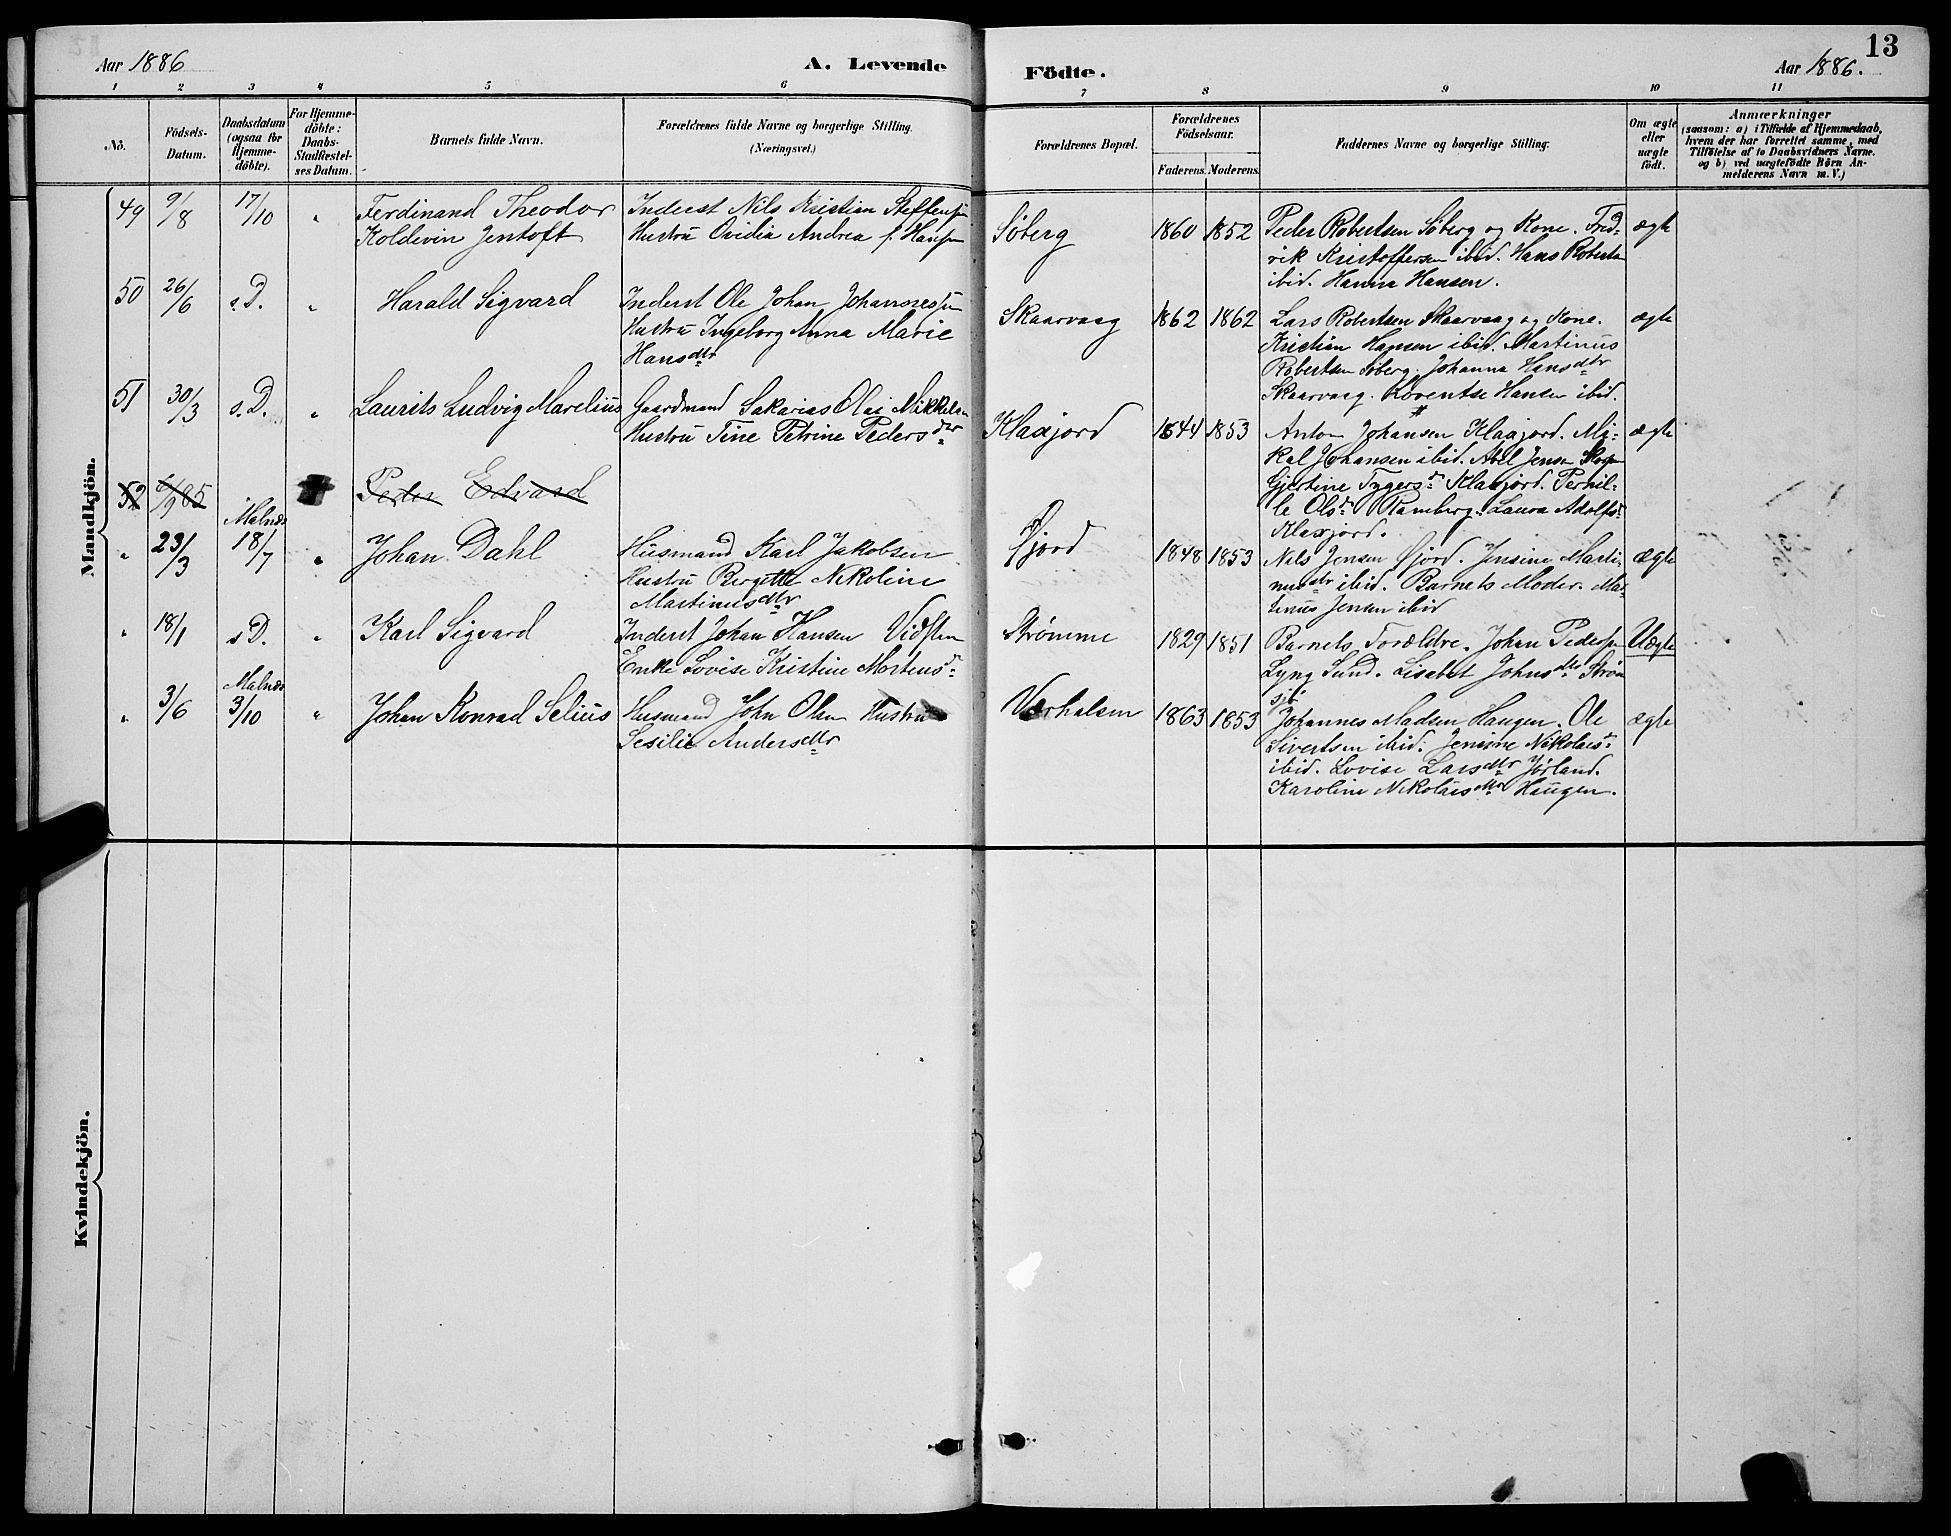 Aar 1886 A. Levende Födte. Aar 1886. 13
1 2 3 4 5 6 7 8 9 10 11
No. Födsels-Datum. Daabsdatum (ogsaa for Hjemmedöbte). For Hjemmedöbte: Daabs-Stadfæstelses Datum. Barnets fulde Navn. Forældrenes fulde Navne og borgerlige Stilling. (Næringsvei.) Forældrenes Bopæl. Forældrenes Födselsaar. Faderens. Moderens. Faddernes Navne og borgerlige Stilling. Om ægte eller uægte födt. Anmærkninger (saasom: a) i Tilfælde af Hjemmedaab, hvem der har forrettet samme, med Tilföielse af to Daabsvidners Navne. og b) ved uægtefödte Börn Anmelderens Navn m. V.)
Mandkjön.
49 9/8 17/10 " Ferdinand Theodor Inderst Nils Kristian Steffensen Söberg 1860 1852 Peder Robertsen Söberg og Kone. Fred- ægte
Koldevin Jentoft Hustru Ovidia Andrea f. Hansen rik Kristoffersen ibid. Hans Robertsen
ibid. Hanna Hansen.
50 26/6 s.D. " Harald Sigvard Inderst Ole Johan Johannessen Skaarvaag 1862 1862 Lars Robertsen Skaarvaag og Kone. ægte
Hustru Ingeborg Anna Marie Kristian Hansen ibid. Martinus
Hansdtr Robertsen Söberg. Johanna Hansdtr
Skaarvaag. Loventse Hansen ibid.
51 30/3 s.D. " Laurits Ludvig Marelius Gaardmand Sakarias Olai Mikkelsen Klaxjord 1844 1853 Anton Johansen Klaxjord. Mi- ægte
Hustru Tine Petrine Pedersdtr kal Johansen ibid. Abel Jensen
Gjertine Tygersd. Klaxjord. Pernil-
le Olsd. Ramberg. Laura Adolfsd.
Klaxjord.
52 6/9 85 Peder Edvard
" 23/3 Malnæs 18/7 " Johan Dahl Husmand Karl Jakobsen Fjord 1848 1853 Nils Jensen Fjord. Jensine Marti- ægte
Hustru Bergitte Nikoline nusdtr ibid. Barnets Moder. Mar-
Martinusdtr tinus Jensen ibid
" 18/1 s.D. " Karl Sigvard Inderst Johan Hansen Vidsten Strømme 1829 1851 Barnets Forældre. Johan Pedersen Uægte
Enke Lovise Kristine Mortensd. Lyng Sund. Lisabet Johnsdtr Strøm
sjö.
" 3/6 Malnæs 3/10 " Johan Konrad Selius Husmand John Olsen Hustru Værhalsen 1863 1853 Johannes Madsen Haugen. Ole ægte
Sesilie Andersdtr Sivertsen ibid. Jensine Nikolaisd.
ibid. Lovise Larsdtr Jörland.
Karoline Nikolaisdtr Haugen.
Kvindekjön.